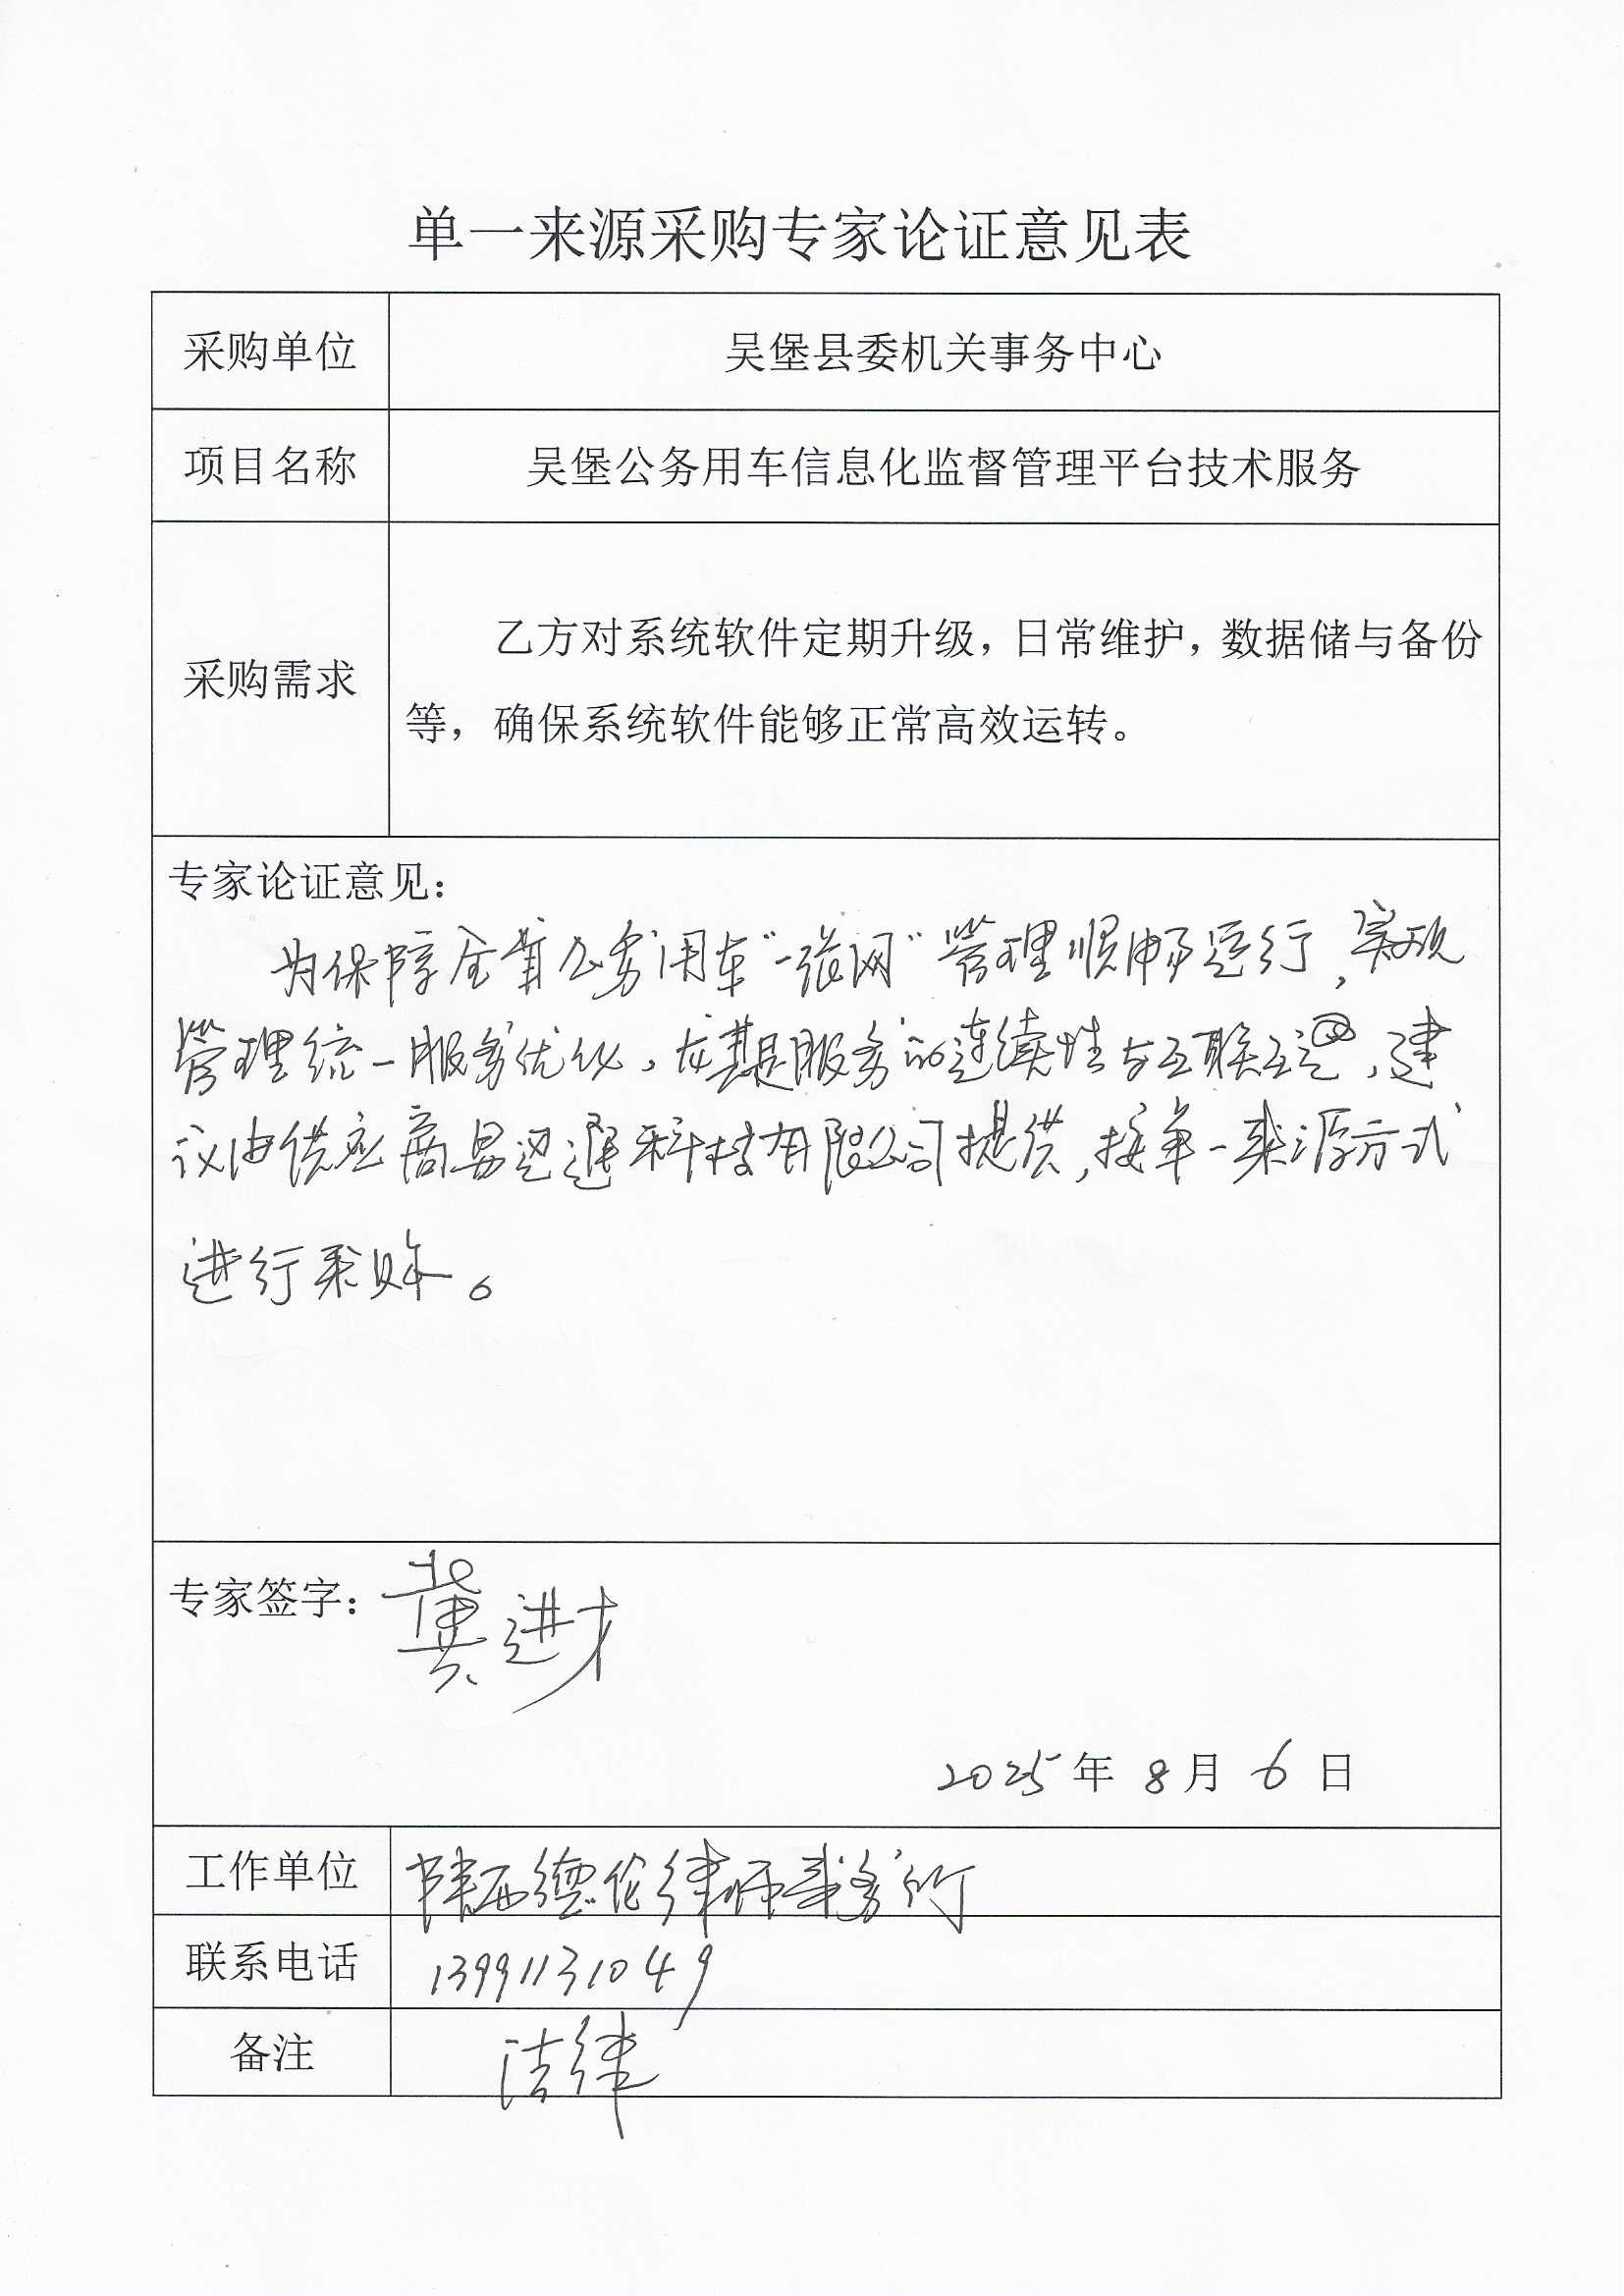 单一来源采购专家论证意见表
采购单位 吴堡县委机关事务中心
项目名称 吴堡公务用车信息化监督管理平台技术服务
采购需求
乙方对系统软件定期升级，日常维护，数据储与备份
等，确保系统软件能够正常高效运转。
专家论证意见：
为保障全省公务用车“一张网”管理顺畅运行，实现
管理统一服务优化，尤其是服务的连续性与互联互通，建
议由供应商易通科技有限公司提供，按单一来源方式
进行采购。
专家签字：龚进才
2025年8月6日
工作单位 陕西德伦律师事务所
联系电话 13991131049
备注 法律